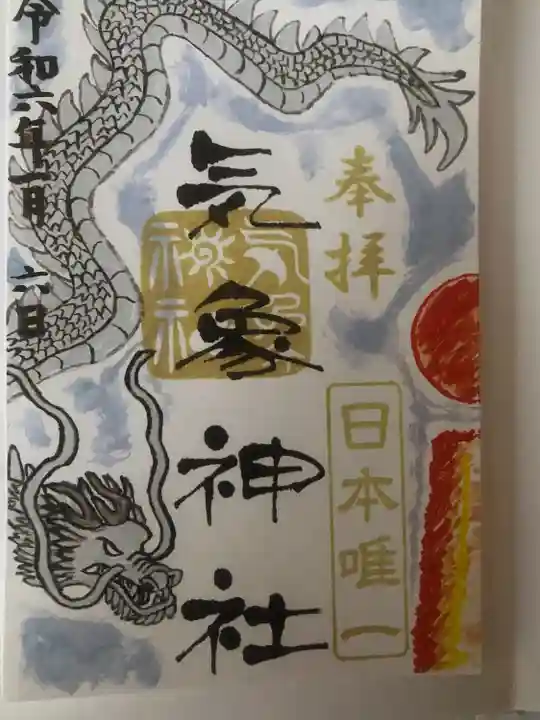 奉拝
日本唯一
気象神社
気象神社
令和六年一月六日